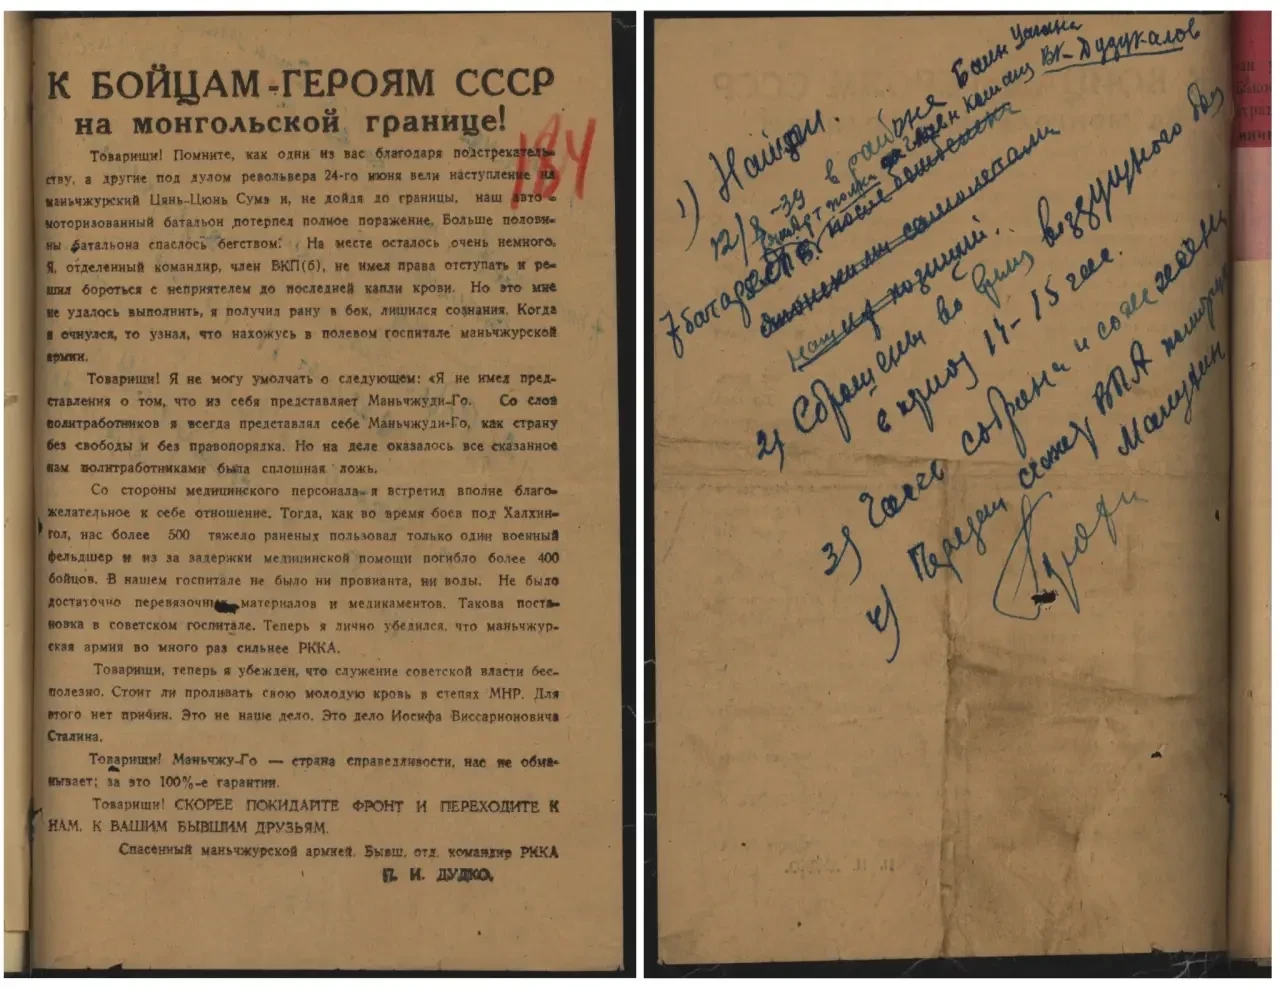 К БОЙЦАМ-ГЕРОЯМ СССР
на монгольской границе!
164
Товарищи! Помните, как одни из вас благодаря подстрекатель-
ству, а другие под дулом револьвера 24-го июня вели наступление на
маньчжурский Цянь-Цюнь Сумэ и, не дойдя до границы, наш авто-
моторизованный батальон потерпел полное поражение. Больше полови-
ны батальона спаслось бегством. На месте осталось очень немного.
Я, отделенный командир, член ВКП(б), не имел права отступать и ре-
шил бороться с неприятелем до последней капли крови. Но это мне
не удалось выполнить, я получил рану в бок, лишился сознания. Когда
я очнулся, то узнал, что нахожусь в полевом госпитале маньчжурской
армии.
Товарищи! Я не могу умолчать о следующем: «Я не имел пред-
ставления о том, что из себя представляет Маньчжуди-Го. Со слов
политработников я всегда представлял себе Маньчжуди-Го, как страну
без свободы и без правопорядка. Но на деле оказалось все сказанное
нам политработниками была сплошная ложь.
Со стороны медицинского персонала я встретил вполне благо-
желательное к себе отношение. Тогда, как во время боев под Халхин-
гол, нас более 500 тяжело раненых пользовал только один военный
фельдшер и из за задержки медицинской помощи погибло более 400
бойцов. В нашем госпитале не было ни провианта, ни воды. Не было
достаточно перевязочных материалов и медикаментов. Такова поста-
новка в советском госпитале. Теперь я лично убедился, что маньчжур-
ская армия во много раз сильнее РККА.
Товарищи, теперь я убежден, что служение советской власти бес-
полезно. Стоит ли проливать свою молодую кровь в степях МНР. Для
этого нет причин. Это не наше дело. Это дело Иосифа Виссарионовича
Сталина.
Товарищи! Маньчжу-Го — страна справедливости, нас не обма-
нывает; за это 100%-е гарантии.
Товарищи! СКОРЕЕ ПОКИДАЙТЕ ФРОНТ И ПЕРЕХОДИТЕ К
НАМ, К ВАШИМ БЫВШИМ ДРУЗЬЯМ.
Спасенный маньчжурской армией. Бывш. отд. командир РККА
П. И. ДУДКО.
1) Найден.
12/8-39 в районе Баин Цагана
член команд ВК-Дудукалов
7 батареи после бомбежки
японскими самолетами
наших позиций.
2) Сброшены во время воздушного боя
в период 14-15 час.
3) Часть собрана и сожжена
4) Передан